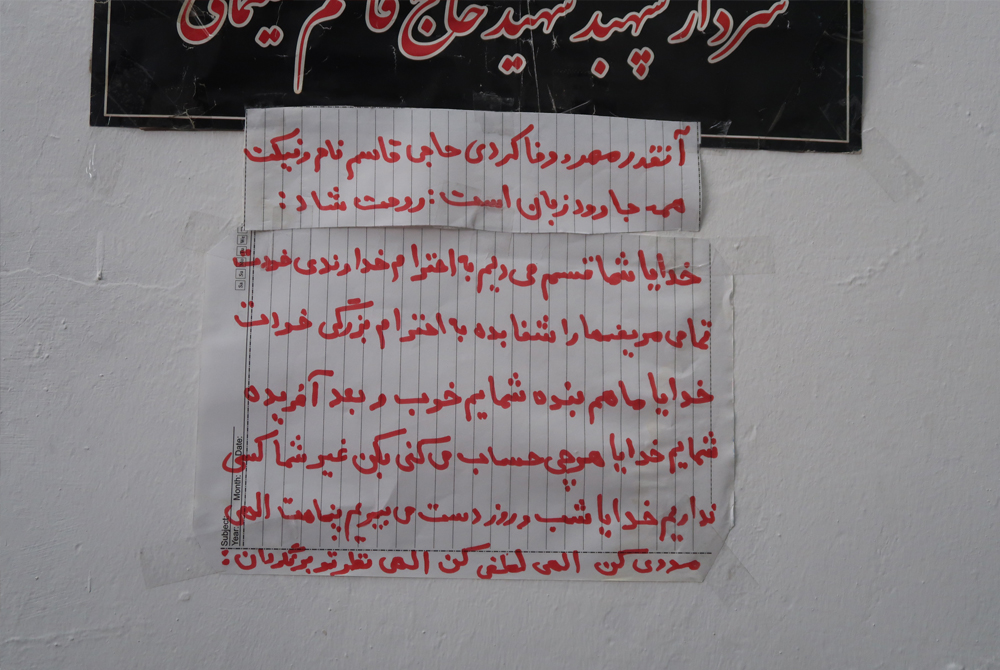 سردار سپهبد شهید حاج قاسم سلیمانی
آنقدر مهرو وفا کردی حاجی قاسم نام و نیکت
همه جا ورد زبان است: روحت شاد:
خدایا شما قسم می دیم به احترام خداوندی خودت
تمامی مریضها را شفا بده به احترام بزرگی خودت
خدایا ماهم بنده شمایم خوب و بعد آفریده
شمایم خدایا هرچی حساب می کنی بکن غیر شما کسی
نداریم خدایا شب و روز دست می بریم بنامت الهی
مددی کن الهی لطفی کن الهی نظر تو برگردان:
Subject:
Year: Month: Date: